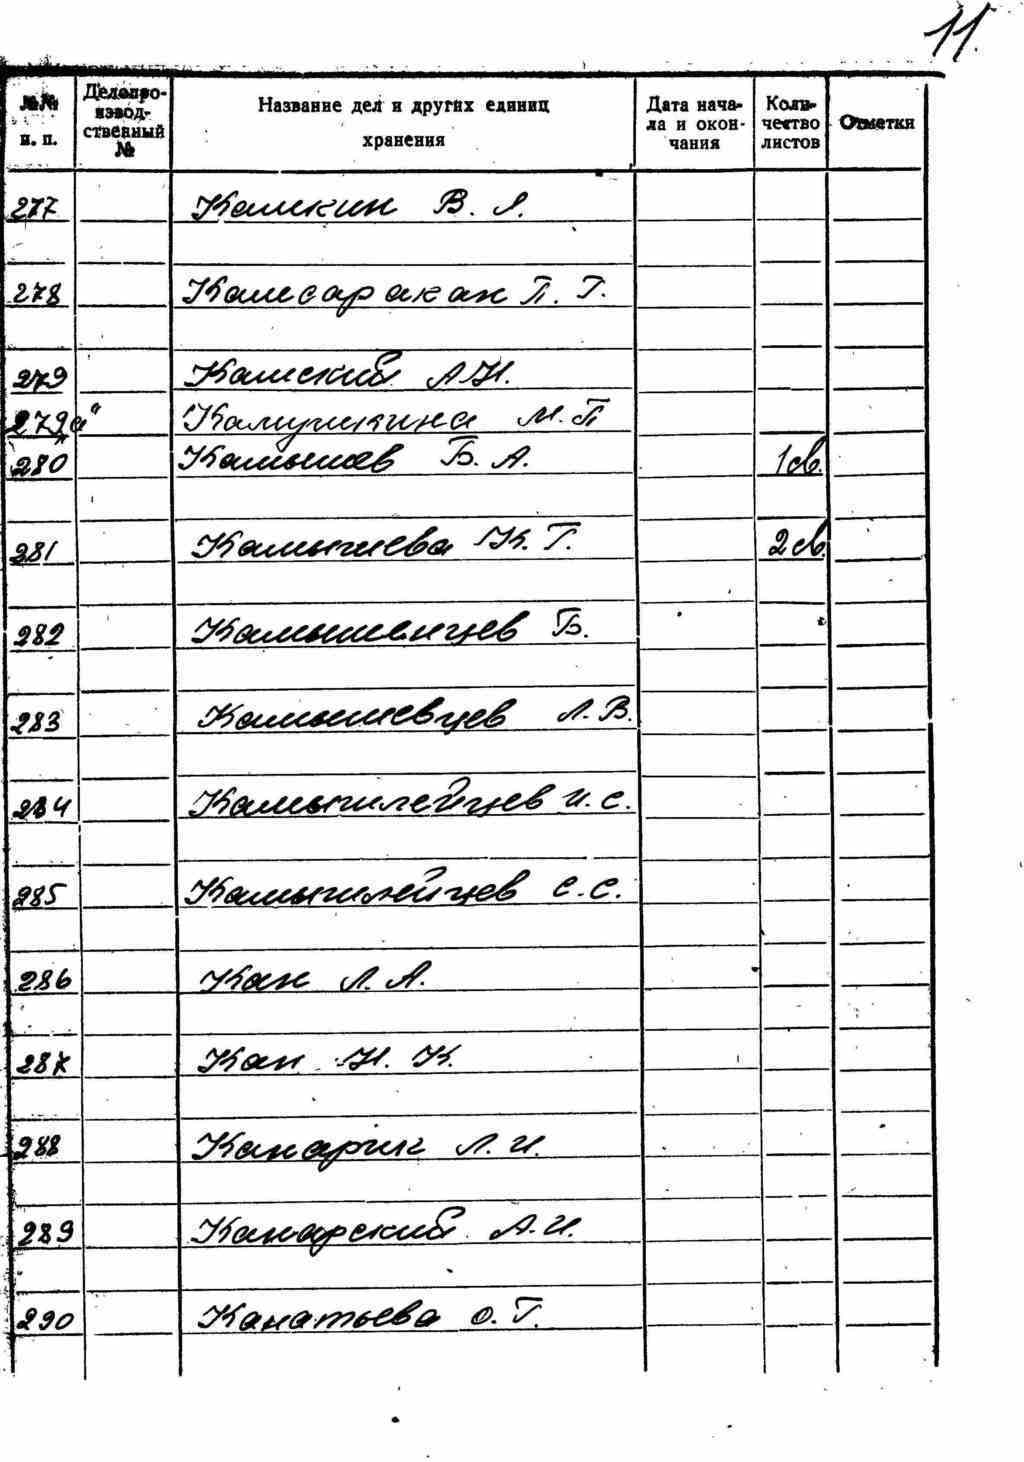 11.
№№ п. п. Делопроизводственный № Название дел и других единиц хранения Дата начала и окончания Количество листов Отметки
277 Камкин В. Л.
278 Камсаракан П. Г.
279 Камский А.Н.
279а" Камушкина М.П
280 Камышев Б. А. 1св.
281 Камышева К. Г. 2св.
282 Камышенцев Б.
283 Камышевцев Л. В.
284 Камышлейцев И. С.
285 Камышлейцев С. С.
286 Кан Л. А.
287 Кан Н. К.
288 Канарик Л. И.
289 Канарский А. И.
290 Канатьева О. Г.